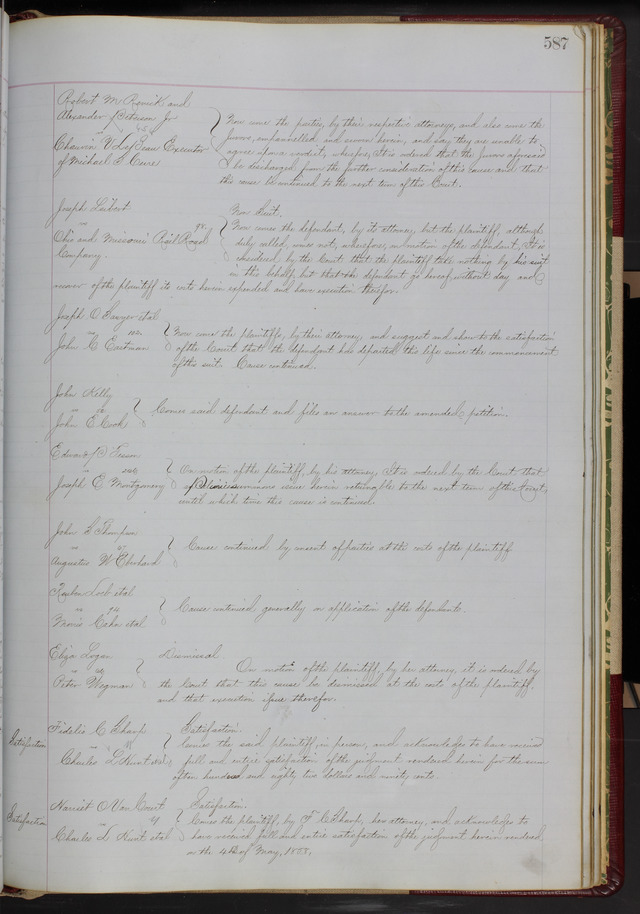 587
Robert M Renick and
Alexander Peterson Jr
vs
Chauvin V LeBeau Executor
of Michael S Cerre
Now come the parties, by their respective attorneys, and also come the
Jurors, empannelled and sworn herein, and say they are unable to
agree upon a verdict, wherefore, It is ordered that the Jurors aforesaid
be discharged from the further consideration of this cause and that
this cause be continued to the next term of this Court.
Joseph Leibert
vs
Ohio and Missouri Rail Road
Company.
Non Suit.
Now comes the defendant, by its attorney, but the plaintiff, although
duly called, comes not, wherefore, on motion of the defendant, It is
considered by the Court that the plaintiff take nothing by his suit
in this behalf, but that the defendant go hereof, without day and
recover of the plaintiff its costs herein expended and have execution therefor.
Joseph O Sawyer et al
vs
John C Eastman
Now come the plaintiffs, by their attorney, and suggest and show to the satisfaction
of the Court that the defendant has departed this life since the commencement
of this suit. Cause continued.
John Kelly
vs
John E Cook
Comes said defendant and files an answer to the amended petition.
Edward P Tesson
vs
Joseph E Montgomery
On motion of the plaintiff, by his attorney, It is ordered by the Court that
summons issue herein returnable to the next term of this Court,
until which time this cause is continued.
John L Thompson
vs
Augustus W Eberhard
Cause continued by consent of parties at the costs of the plaintiff.
Reuben Loeb et al
vs 94
Morris Cohn et al
Cause continued generally on application of the defendants.
Eliza Logan
vs
Peter Wegman
Dismissal
On motion of the plaintiff, by her attorney, it is ordered by
the Court that this cause be dismissed at the costs of the plaintiff,
and that execution issue therefor.
Satisfaction
Fidelio C Sharp
vs
Charles L Hunt et al
Satisfaction.
Comes the said plaintiff, in person, and acknowledges to have received
full and entire satisfaction of the judgment rendered herein for the sum
of ten hundred and eighty two dollars and ninety cents.
Satisfaction
Harriet O Van Court
vs
Charles L Hunt et al
Satisfaction.
Comes the plaintiff, by F C Sharp, her attorney, and acknowledges to
have received full and entire satisfaction of the judgment herein rendered
on the 4th of May,